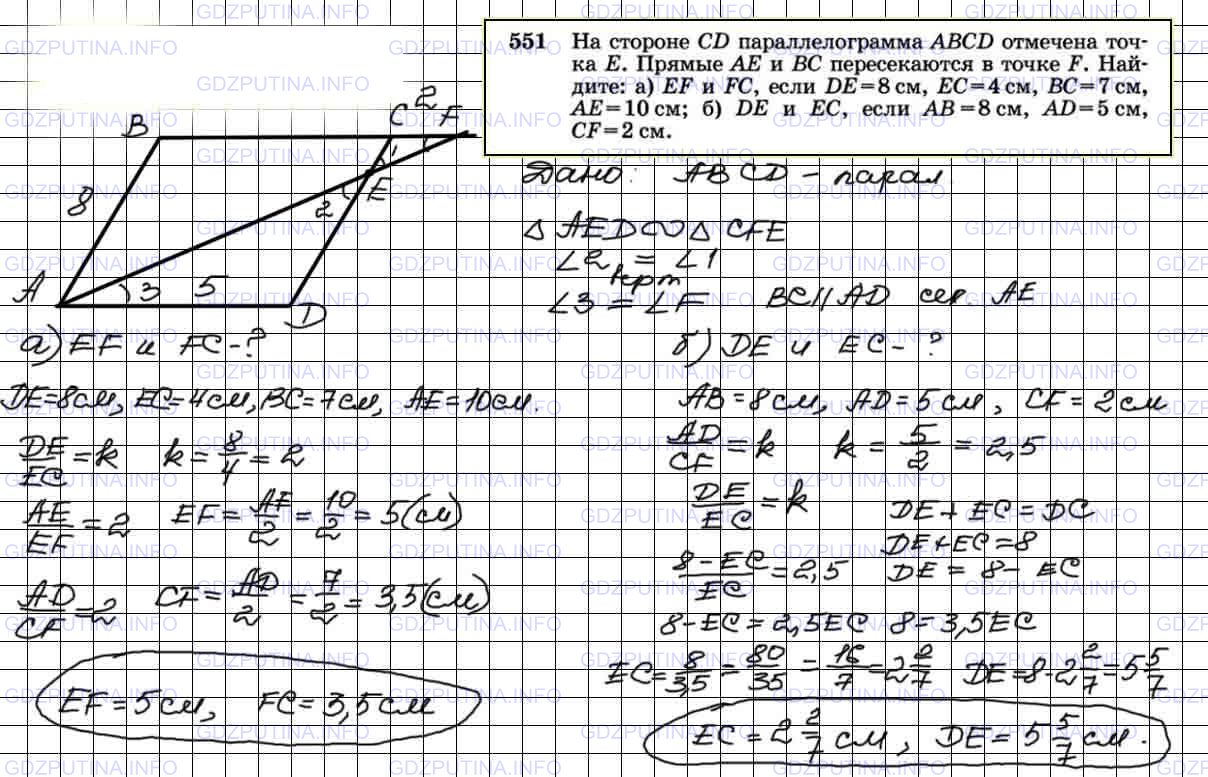 551 На стороне CD параллелограмма ABCD отмечена точ-
ка E. Прямые AE и BC пересекаются в точке F. Най-
дите: а) EF и FC, если DE=8 см, EC=4 см, BC=7 см,
AE=10 см; б) DE и EC, если AB=8 см, AD=5 см,
CF=2 см.
B C 2 F
1
8 E
2
A 3 5 D
Дано: ABCD - парал.
△ AED ∽ △ CFE
∠2 = ∠1
верт
∠3 = ∠F BC || AD сек. AE
а) EF и FC - ?
DE=8см, EC=4см, BC=7см, AE=10см.
DE/EC = k k = 8/4 = 2
AE/EF = 2 EF = AE/2 = 10/2 = 5(см)
AD/CF = 2 CF = AD/2 = 7/2 = 3,5(см)
EF = 5см, FC = 3,5см
б) DE и EC - ?
AB = 8см, AD = 5см, CF = 2см
AD/CF = k k = 5/2 = 2,5
DE/EC = k DE + EC = DC
DE+EC = 8
8-EC/EC = 2,5 DE = 8 - EC
8-EC = 2,5EC 8 = 3,5EC
EC = 8/3,5 = 80/35 = 16/7 = 2 2/7 DE = 8-2 2/7 = 5 5/7
EC = 2 2/7 см, DE = 5 5/7 см.
GDZPUTINA.INFO